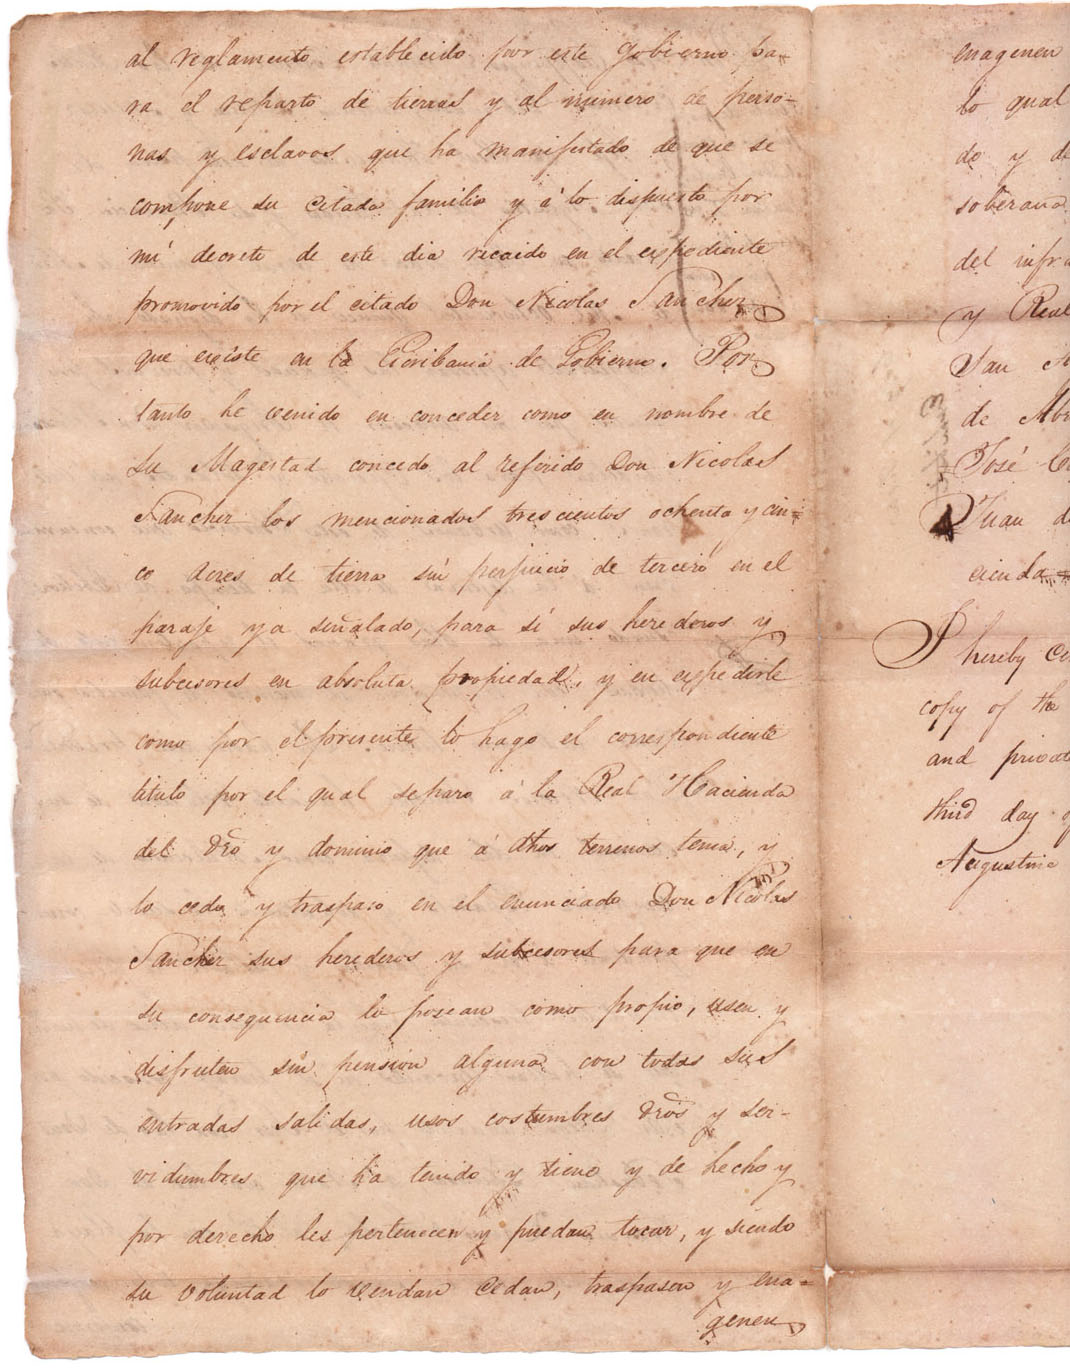 al reglamento establecido por este Gobierno pa-
ra el reparto de tierras y al numero de perso-
nas y esclavos que ha manifestado de que se
compone su citada familia y á lo dispuesto por
mi decreto de este dia recaido en el expediente
promovido por el citado Don Nicolas Sanchez
que existe en la Escribania de Gobierno. Por
tanto he venido en conceder como en nombre de
Su Magestad concedo al referido Don Nicolas
Sanchez los mencionados trescientos ochenta y cin-
co acres de tierra sin perjuicio de tercero en el
paraje ya señalado, para si sus herederos y
subcesores en absoluta propiedad, y en expedirle
como por el presente lo hago el correspondiente
titulo por el qual separo á la Real Hacienda
del dro y dominio que á dhos terrenos tenia, y
lo cedo y traspaso en el enunciado Don Nicolas
Sanchez sus herederos y subcesores para que en
su consequencia lo posean como propio, usen y
disfruten sin pension alguna con todas sus
entradas salidas, usos costumbres dros y ser-
vidumbres que ha tenido y tiene y de hecho y
por derecho les pertenecen y puedan tocar, y siendo
su voluntad lo vendan cedan, traspasen y ena-
genen
enagenen
lo qual
do y
soberana
del
y Real
San
de
José
Juan
cienda
I hereby
copy of the
and
third day
Augustine